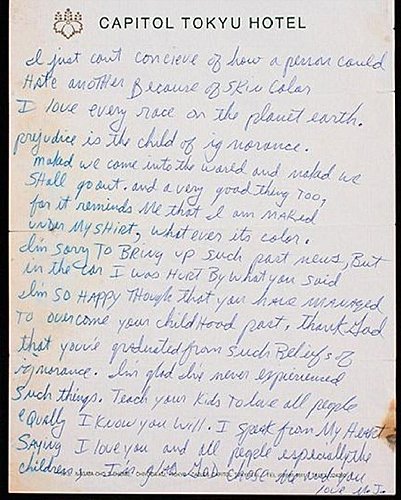 CAPITOL TOKYU HOTEL
I just cant concieve of how a person could
Hate another Because of skin color
I love every race on the planet earth.
prejudice is the child of ignorance.
naked we come into the world and naked we
shall go out. and a very good thing too,
for it reminds Me that I am naked
under My shirt, whatever its color.
I'm sorry To Bring up such past news, But
in the car I was Hurt By what you said
I'm SO HAPPY THough that you have managed
To overcome your childHood past. Thank God
that you've graduated from such Beliefs of
ignorance. I'm glad I've never experienced
such things. Teach your Kids To love all people
equally I know you will. I speak from My Heart
Saying I love you and all people especially the
children I'm glad God chose you and you
love M.J.